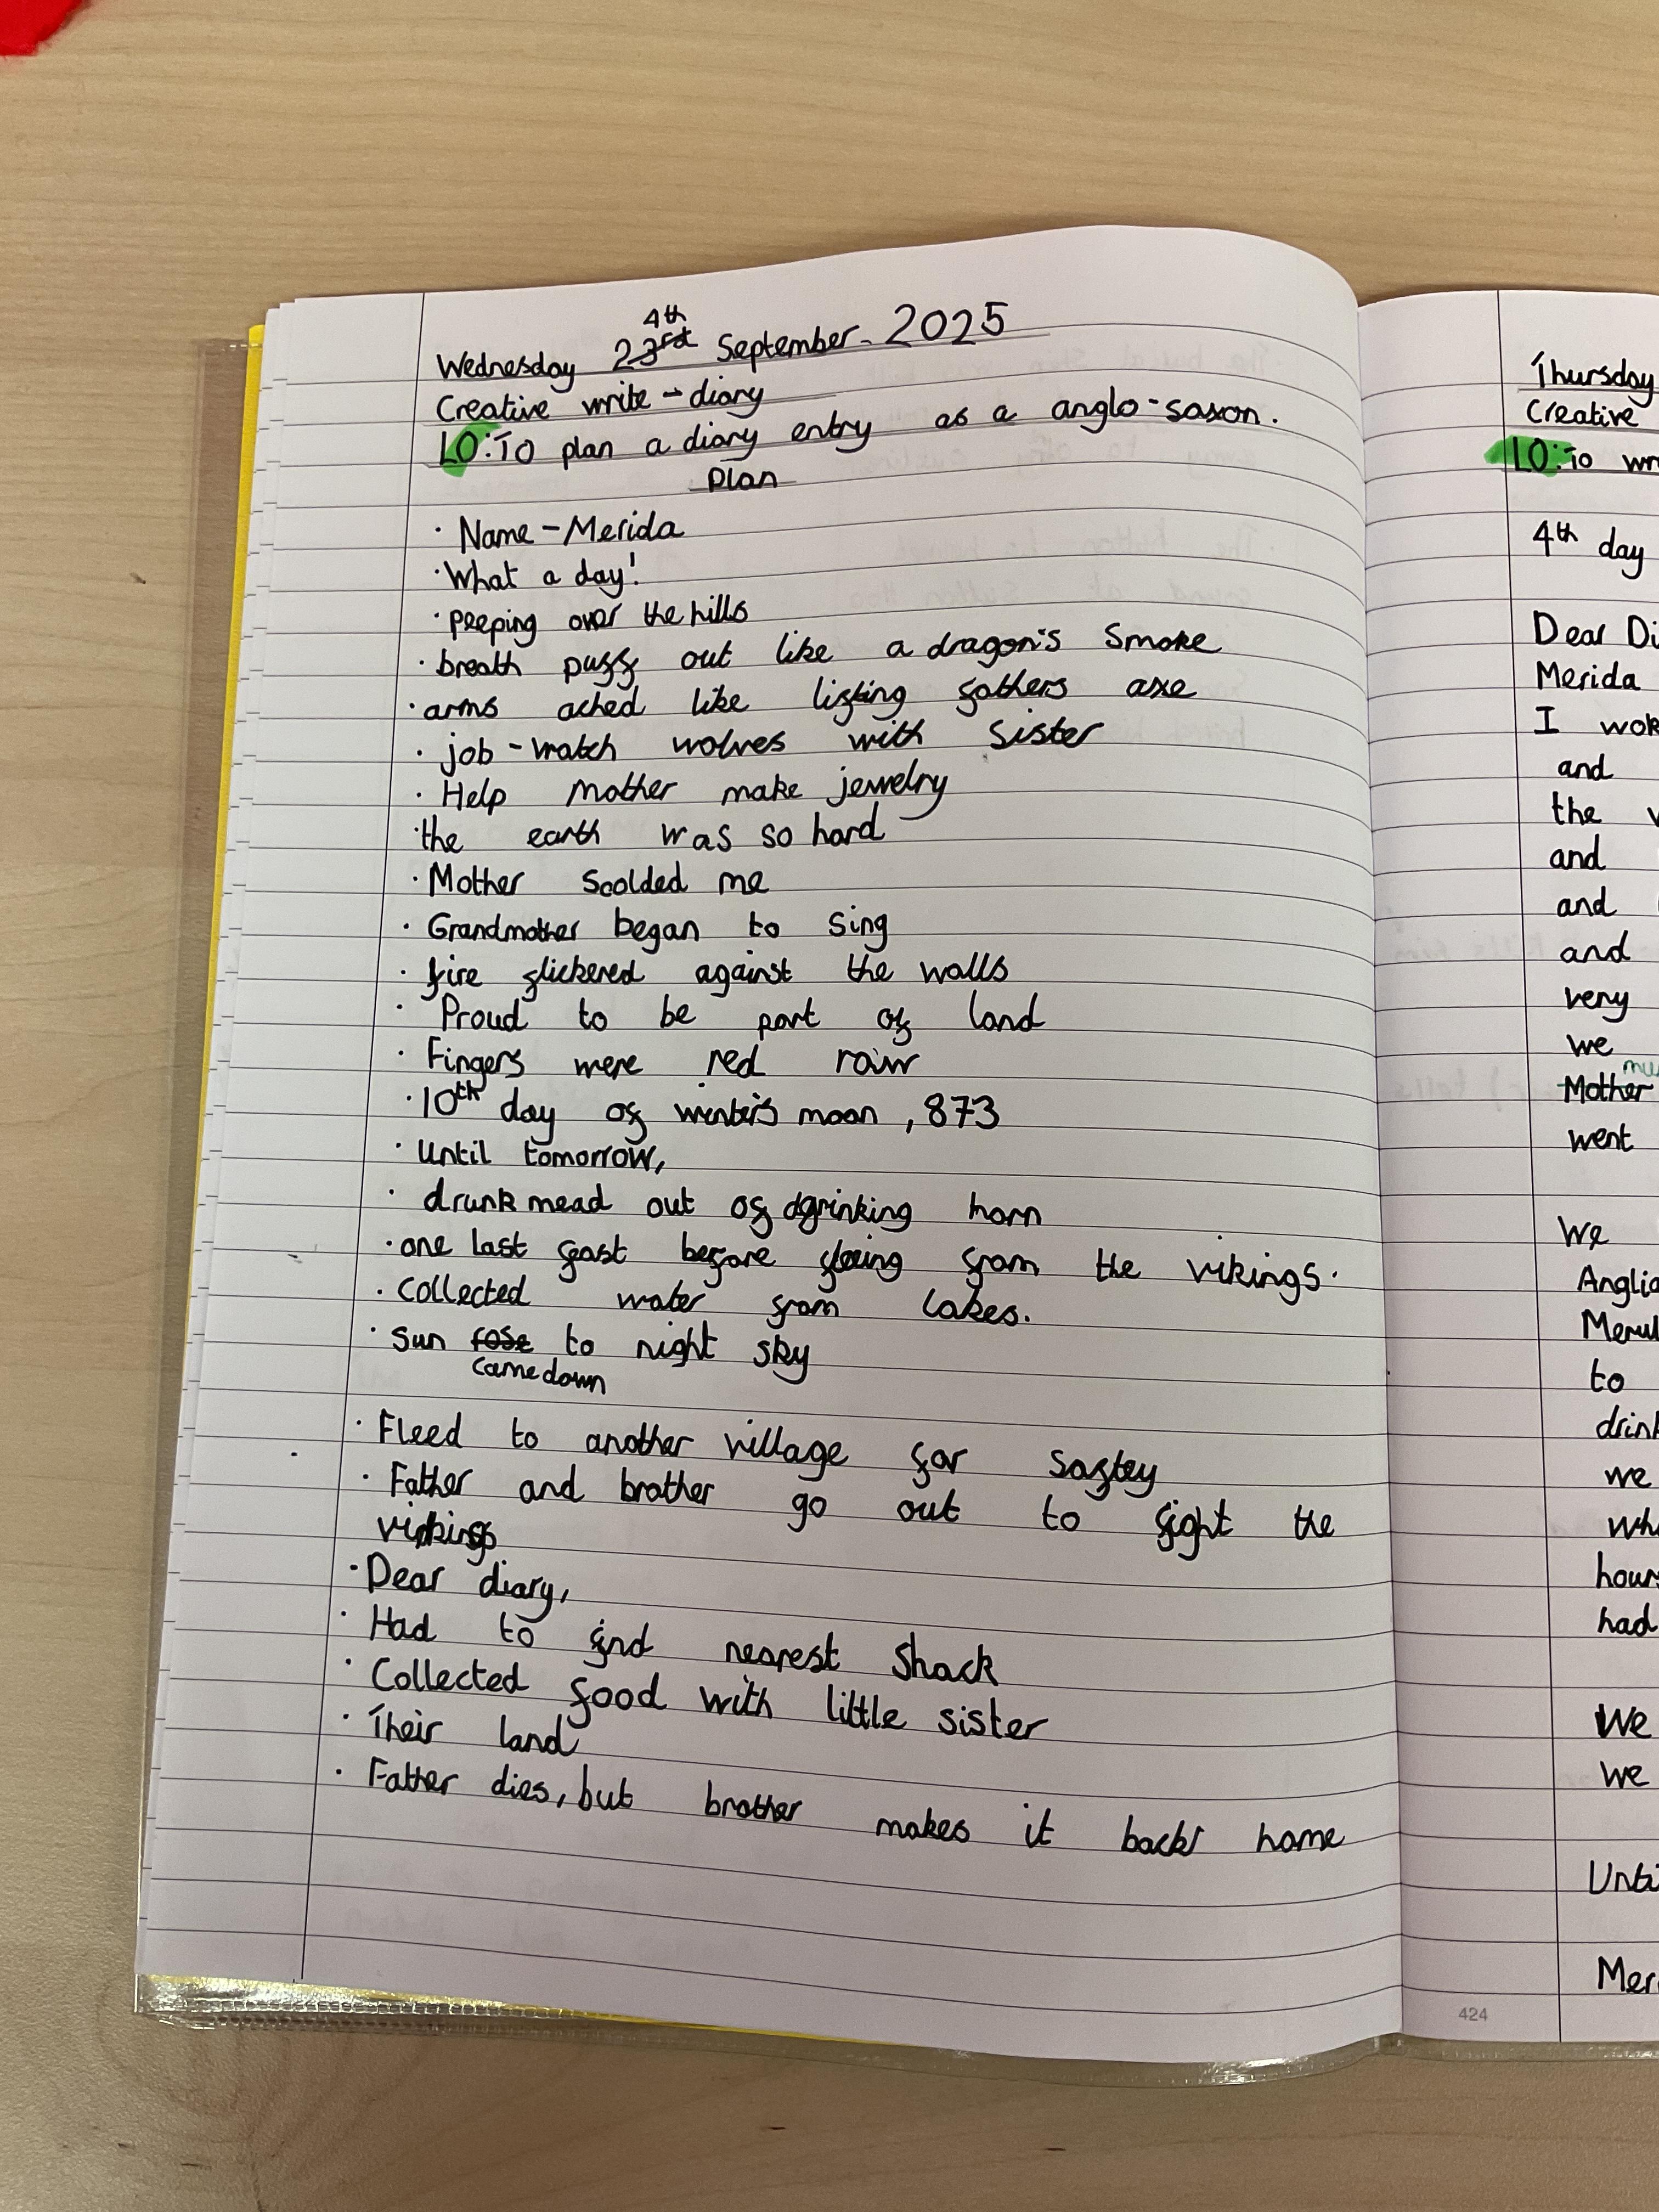 Wednesday 23rd 4th September. 2025
Creative write - diary
LO: To plan a diary entry as a anglo-saxon.
Plan
· Name - Merida
· What a day!
· peeping over the hills
· breath puff out like a dragon's smoke
· arms ached like lifting fathers axe
· job - watch wolves with sister
· Help mother make jewelry
· the earth was so hard
· Mother scolded me
· Grandmother began to sing
· fire flickered against the walls
· Proud to be part of land
· Fingers were red raw
· 10th day of winter's moon, 873
· Until tomorrow,
· drunk mead out of drinking horn
· one last feast before fleeing from the vikings.
· collected water from lakes.
· sun rose to night sky
came down
· Fleed to another village for saftey
· Father and brother go out to fight the
vikings
· Dear diary,
· Had to find nearest shack
· Collected food with little sister
· Their land
· Father dies, but brother makes it back home
Thursday
Creative
LO: To
4th day
Dear
Merida
I
and
the
and
and
and
very
we
Mother
went
We
to
we
had
We
we
424